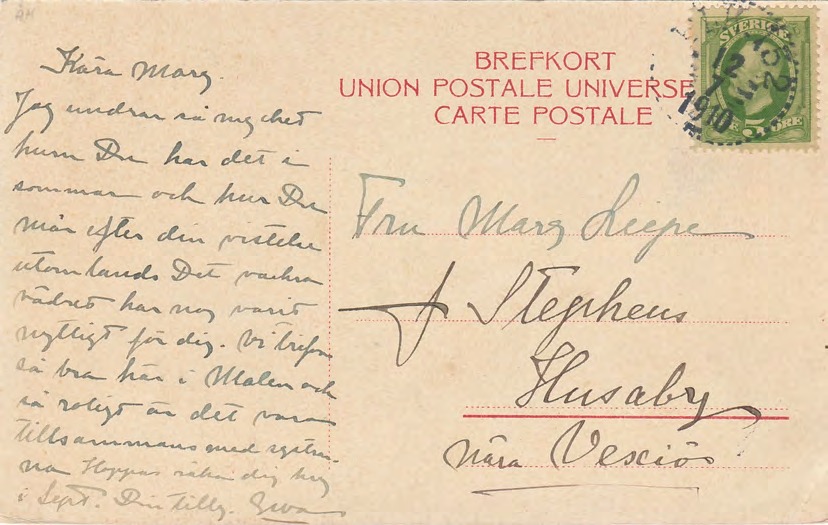 Kära Marg.
Jag undrar så mycket
hurn Du har det i
sommar och hur Du
mår efter din vistelse
utomlands Det vackra
vädret har nog varit
nyttigt för dig. Vi trifvas
så bra här i Malen och
så roligt är det vara
tillsammans med systrar-
na Hoppas råka dig
i Sept. Din tillg. Ewa
BREFKORT
UNION POSTALE UNIVERSE
CARTE POSTALE
SVERIGE
12
7
1910
5 ÖRE
Fru Marg Liepe
Stephens
Husaby
nära Vexiö